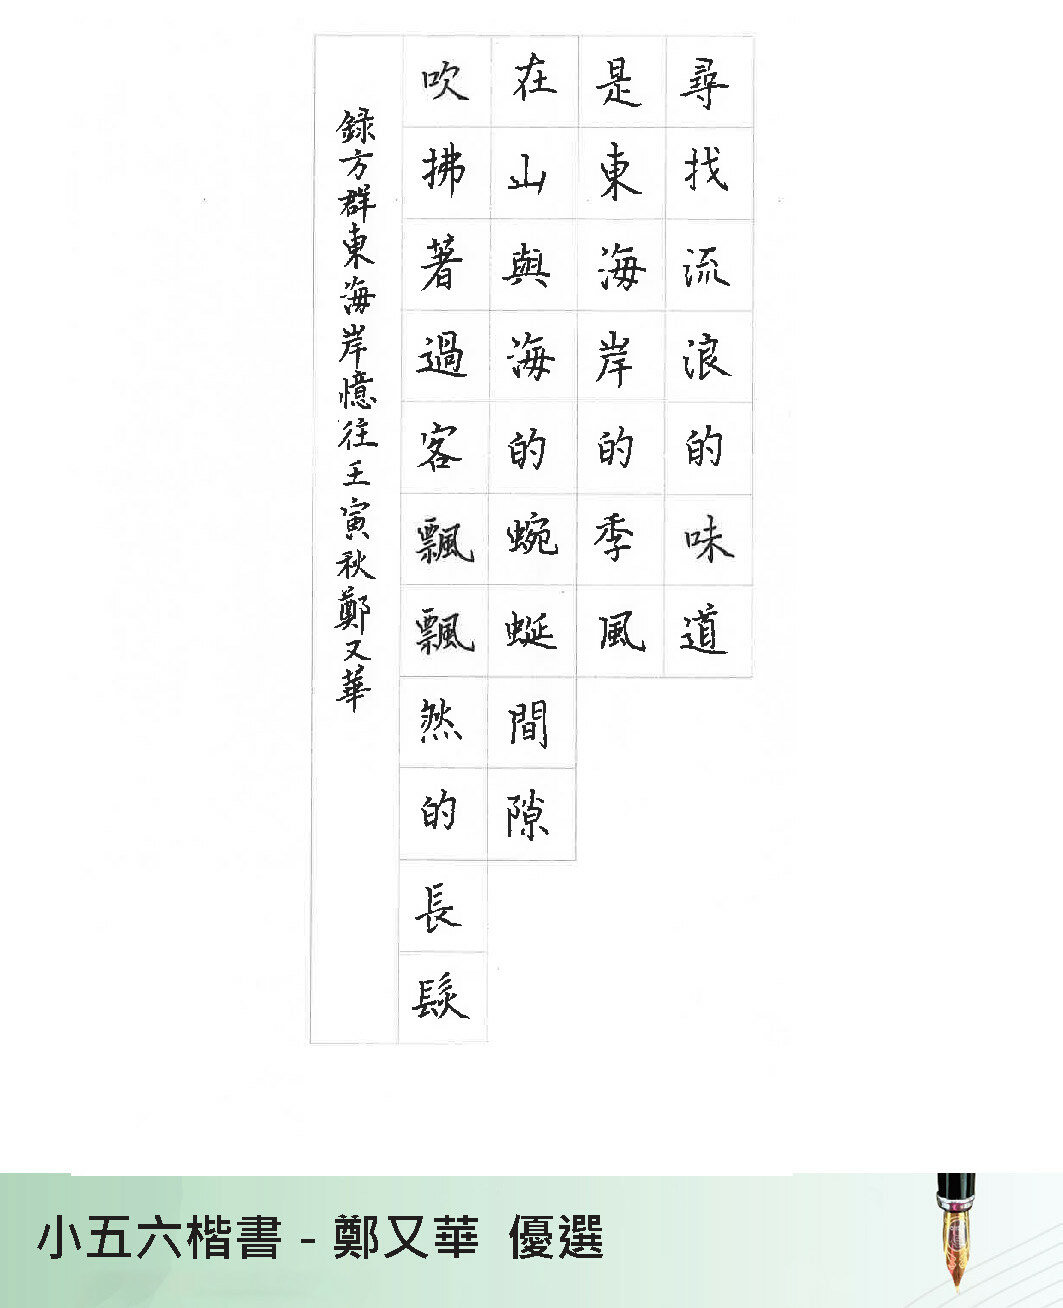 尋找流浪的味道
是東海岸的季風
在山與海的蜿蜒間隙
吹拂著過客飄飄然的長髮
錄方群東海岸憶往王寅秋鄭又華
小五六楷書 - 鄭又華 優選